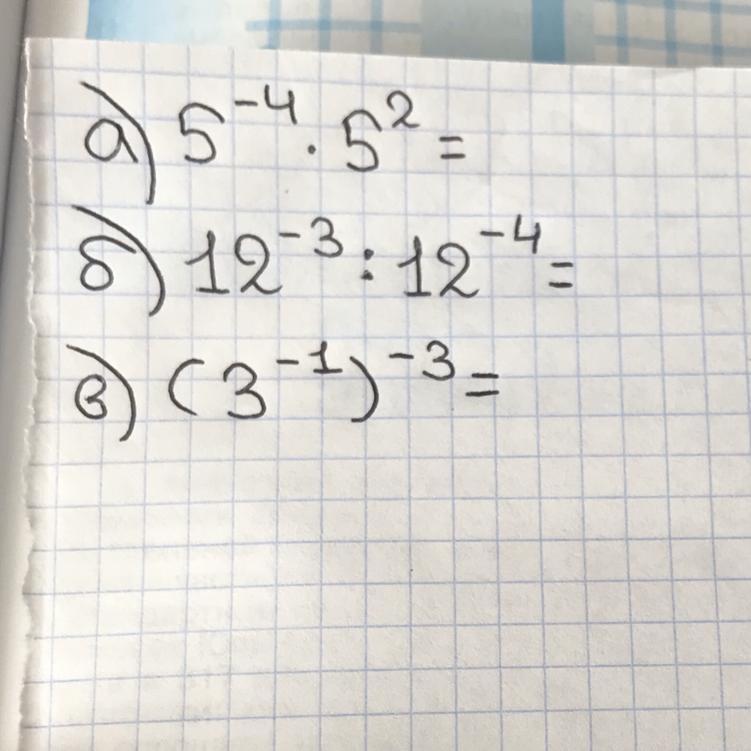 а) 5⁻⁴ · 5² =
б) 12⁻³ : 12⁻⁴ =
в) (3⁻¹)⁻³ =